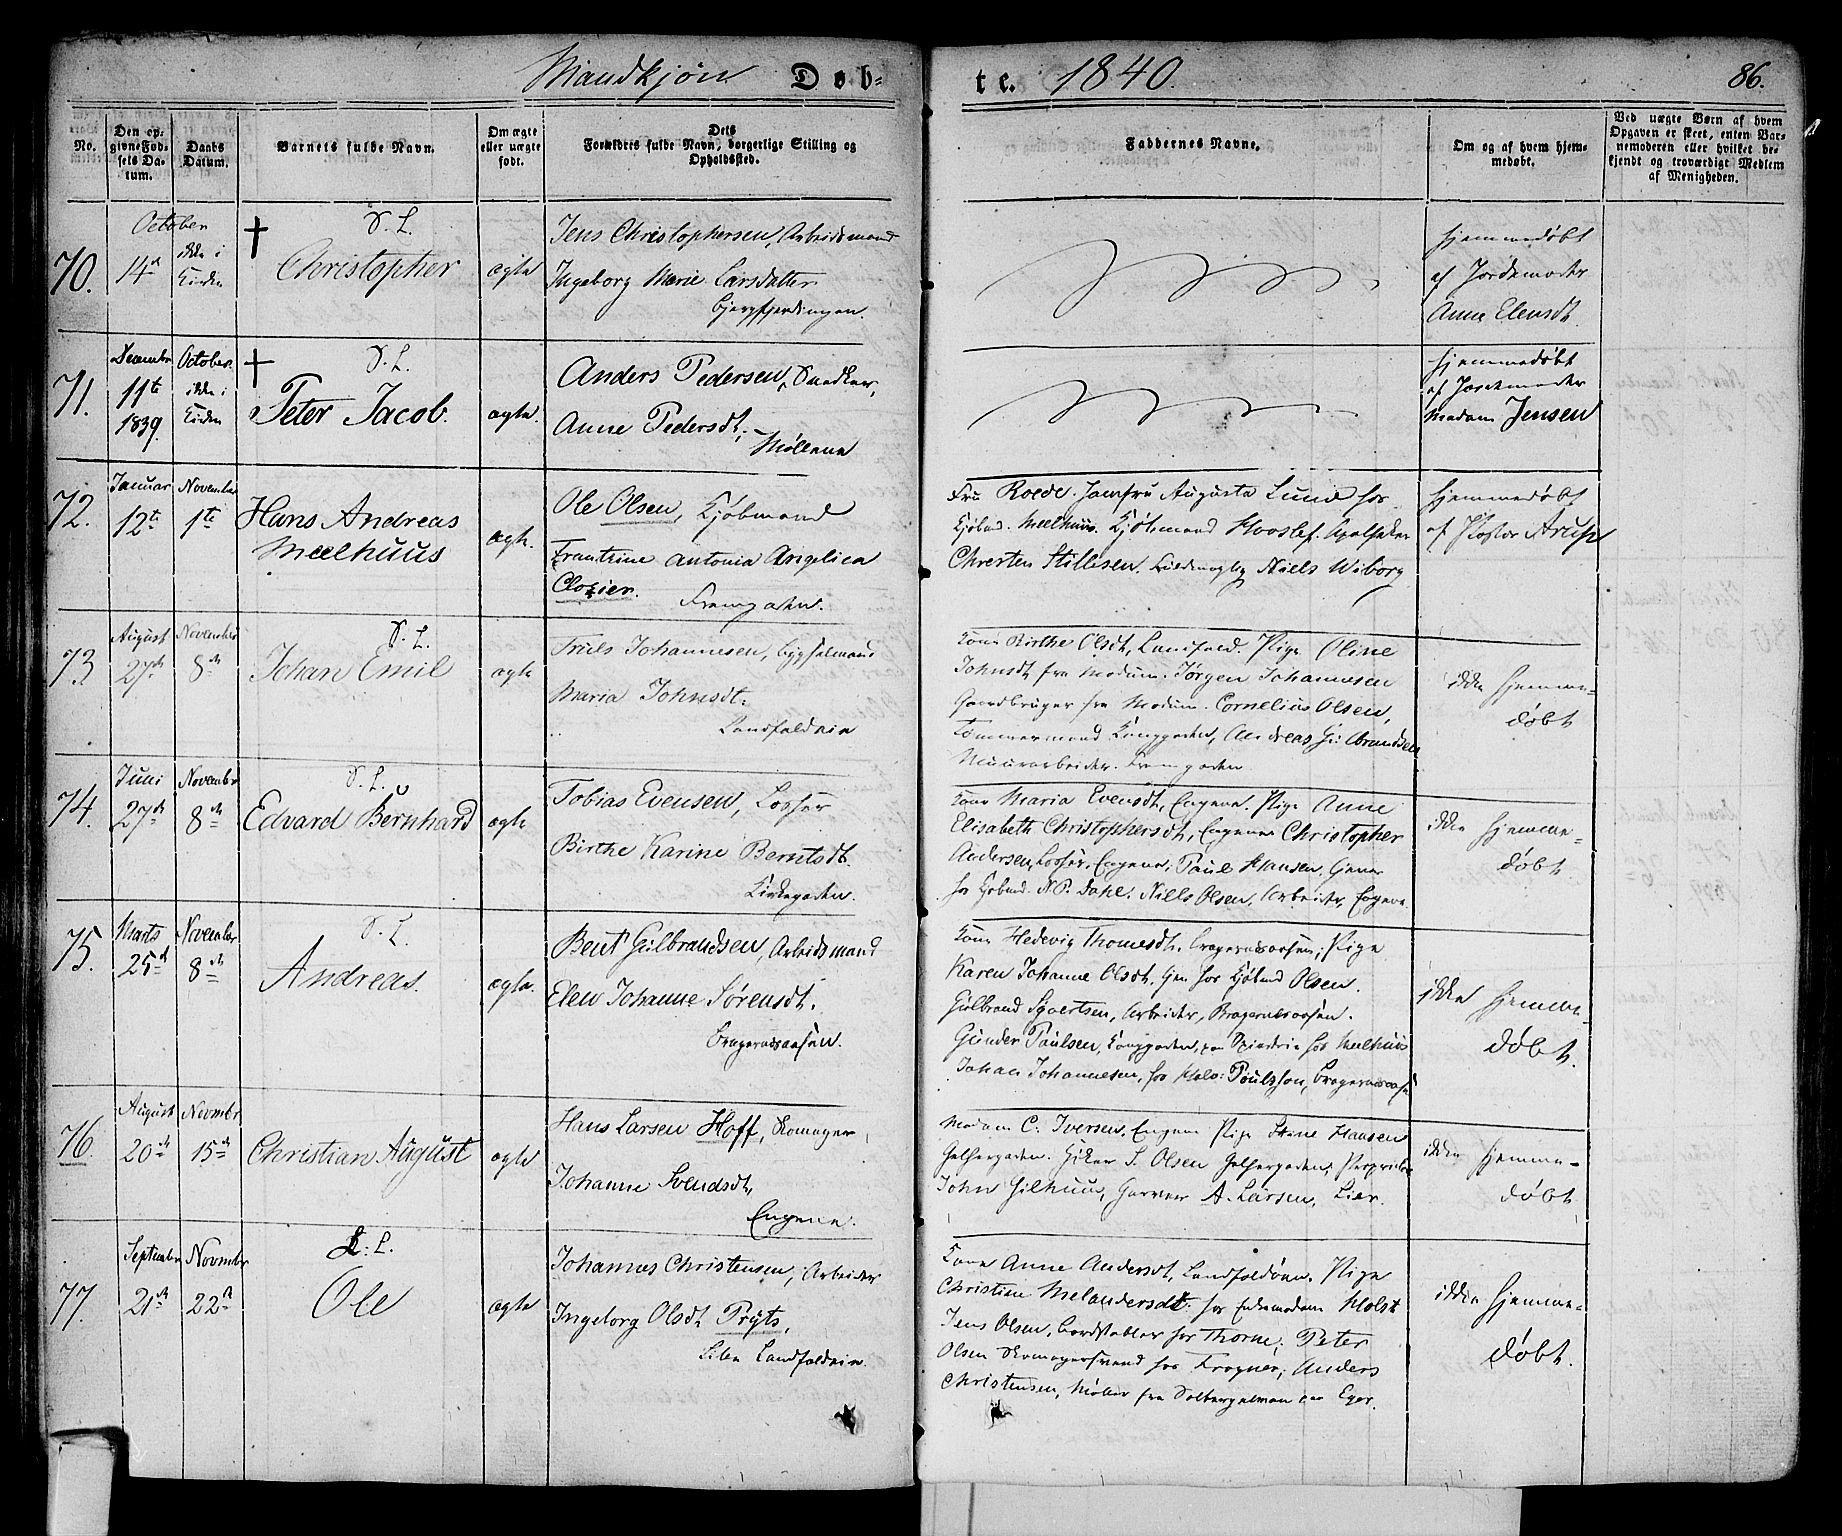 Mandkjøn Døb-
te. 1840. 86.
No.
Den op-
givne Fød-
sels Da-
tum.
Daabs
Datum.
Barnets fulde Navn.
Om ægte
eller uægte
født.
Dets
Forældres fulde Navn, borgerlige Stilling og
Opholdssted.
Faddernes Navne.
Om og af hvem hjem-
medøbt.
Ved uægte Børn af hvem
Opgaven er skeet, enten Bar-
nemoderen eller hvilket be-
kjendt og troværdigt Medlem
af Menigheden.
70.
October
14
ikke i
Kirken
S. L.
Christopher
ægte
Jens Christophersen, Arbeidsmand
Ingeborg Marie Larsdatter
Bjergfjerdingen.
hjemmedøbt
af Jordemoder
Anne Elensdt.
71.
Decembr
11te
1839.
October.
ikke i
Kirken
S. L.
Peter Jacob.
ægte.
Anders Pedersen, Snedker,
Anne Pedersdt.
Møllene
hjemmedøbt
af Jordemoder
Madam Jensen
72.
Januar
12te
November
1te
Hans Andreas
Meelhuus
ægte.
Ole Olsen, Kjøbmand
Frantzine Antonia Angelica
Clozier.
Fremgaden.
Fru Roede. Jomfru Augusta Lund hos
Kjøbmd. Meelhuus. Kjøbmand Hooslef. Apotheker
Chresten Stillesen. Niels Wiborg
hjemmedøbt
af Pastor Arup
73
August
27de
November
8de
S. L.
Johan Emil
ægte
Truls Johannesen, Bygselmand
Maria Johnsdt.
Landfaldeie
Kone Birthe Olsdt, Landfald. Pige Oline
Johnsdt fra Modum. Jørgen Johannesen
Gaardbruger fra Modum. Cornelius Olsen,
Tømmermand Konggaden, Andreas Gulbrandsen
Muurarbeider. Fremgaden
ikke hjemme-
døbt
74.
Juni
27de
Novembr
8de
S. L.
Edvard Bernhard
ægte
Tobias Evensen, Losser
Birthe Karine Berntsdt.
Kirkegaden.
Kone Maria Evensdt, Engene. Pige Anne
Elisabeth Christophersdt, Engene Christopher
Andersen, Losser, Engene; Paul Hansen, Gjener
hos Kjøbmd. N.P. Dahl. Niels Olsen, Arbeider, Engene.
ikke hjemme-
døbt.
75.
Marts
25de
November
8de
S. L.
Andreas.
ægte.
Bent Gulbrandsen, Arbeidsmand
Elen Johanne Sørensdt.
Bragernæsaasen.
Kone Hedevig Thomesdt. Bragernæsaasen; Pige
Karen Johanne Olsdt, tjen hos Kjøbmd Olsen.
Gulbrand Syvertsen, Arbeider, Bragernæsaasen.
Gunder Paulsen, Konggaden, hos Meelhuus
Johan Johannesen, hos Poulsson, Bragernæsaase
ikke hjemme-
døbt.
76.
August
20de
Novmbr
15de
Christian August
ægte
Hans Larsen Hoff, Skomager,
Johanne Svendsdt,
Engene.
Madam C. Iversen, Engene Pige Stine Hansen
S. Olsen
John Gilhuus, Garver A. Larsen, Lier.
ikke hjemme-
døbt
77.
September
21de
Novmbr
22de
S. L.
Ole
ægte
Johannes Christensen, Arbeider
Ingeborg Olsdt. Pryts,
Lilen Landfaldeie.
Kone Anne Andersdt, Landfaldøen. Pige
Christine Melandersdt. hos Enkemadam Holst
Jens Olsen, Bordstabler hos Thorne; Peter
Olsen Skomagersvend hos Frogner; Anders
Christensen, Møller fra Solbergelven paa Eger.
ikke hjemme-
døbt.